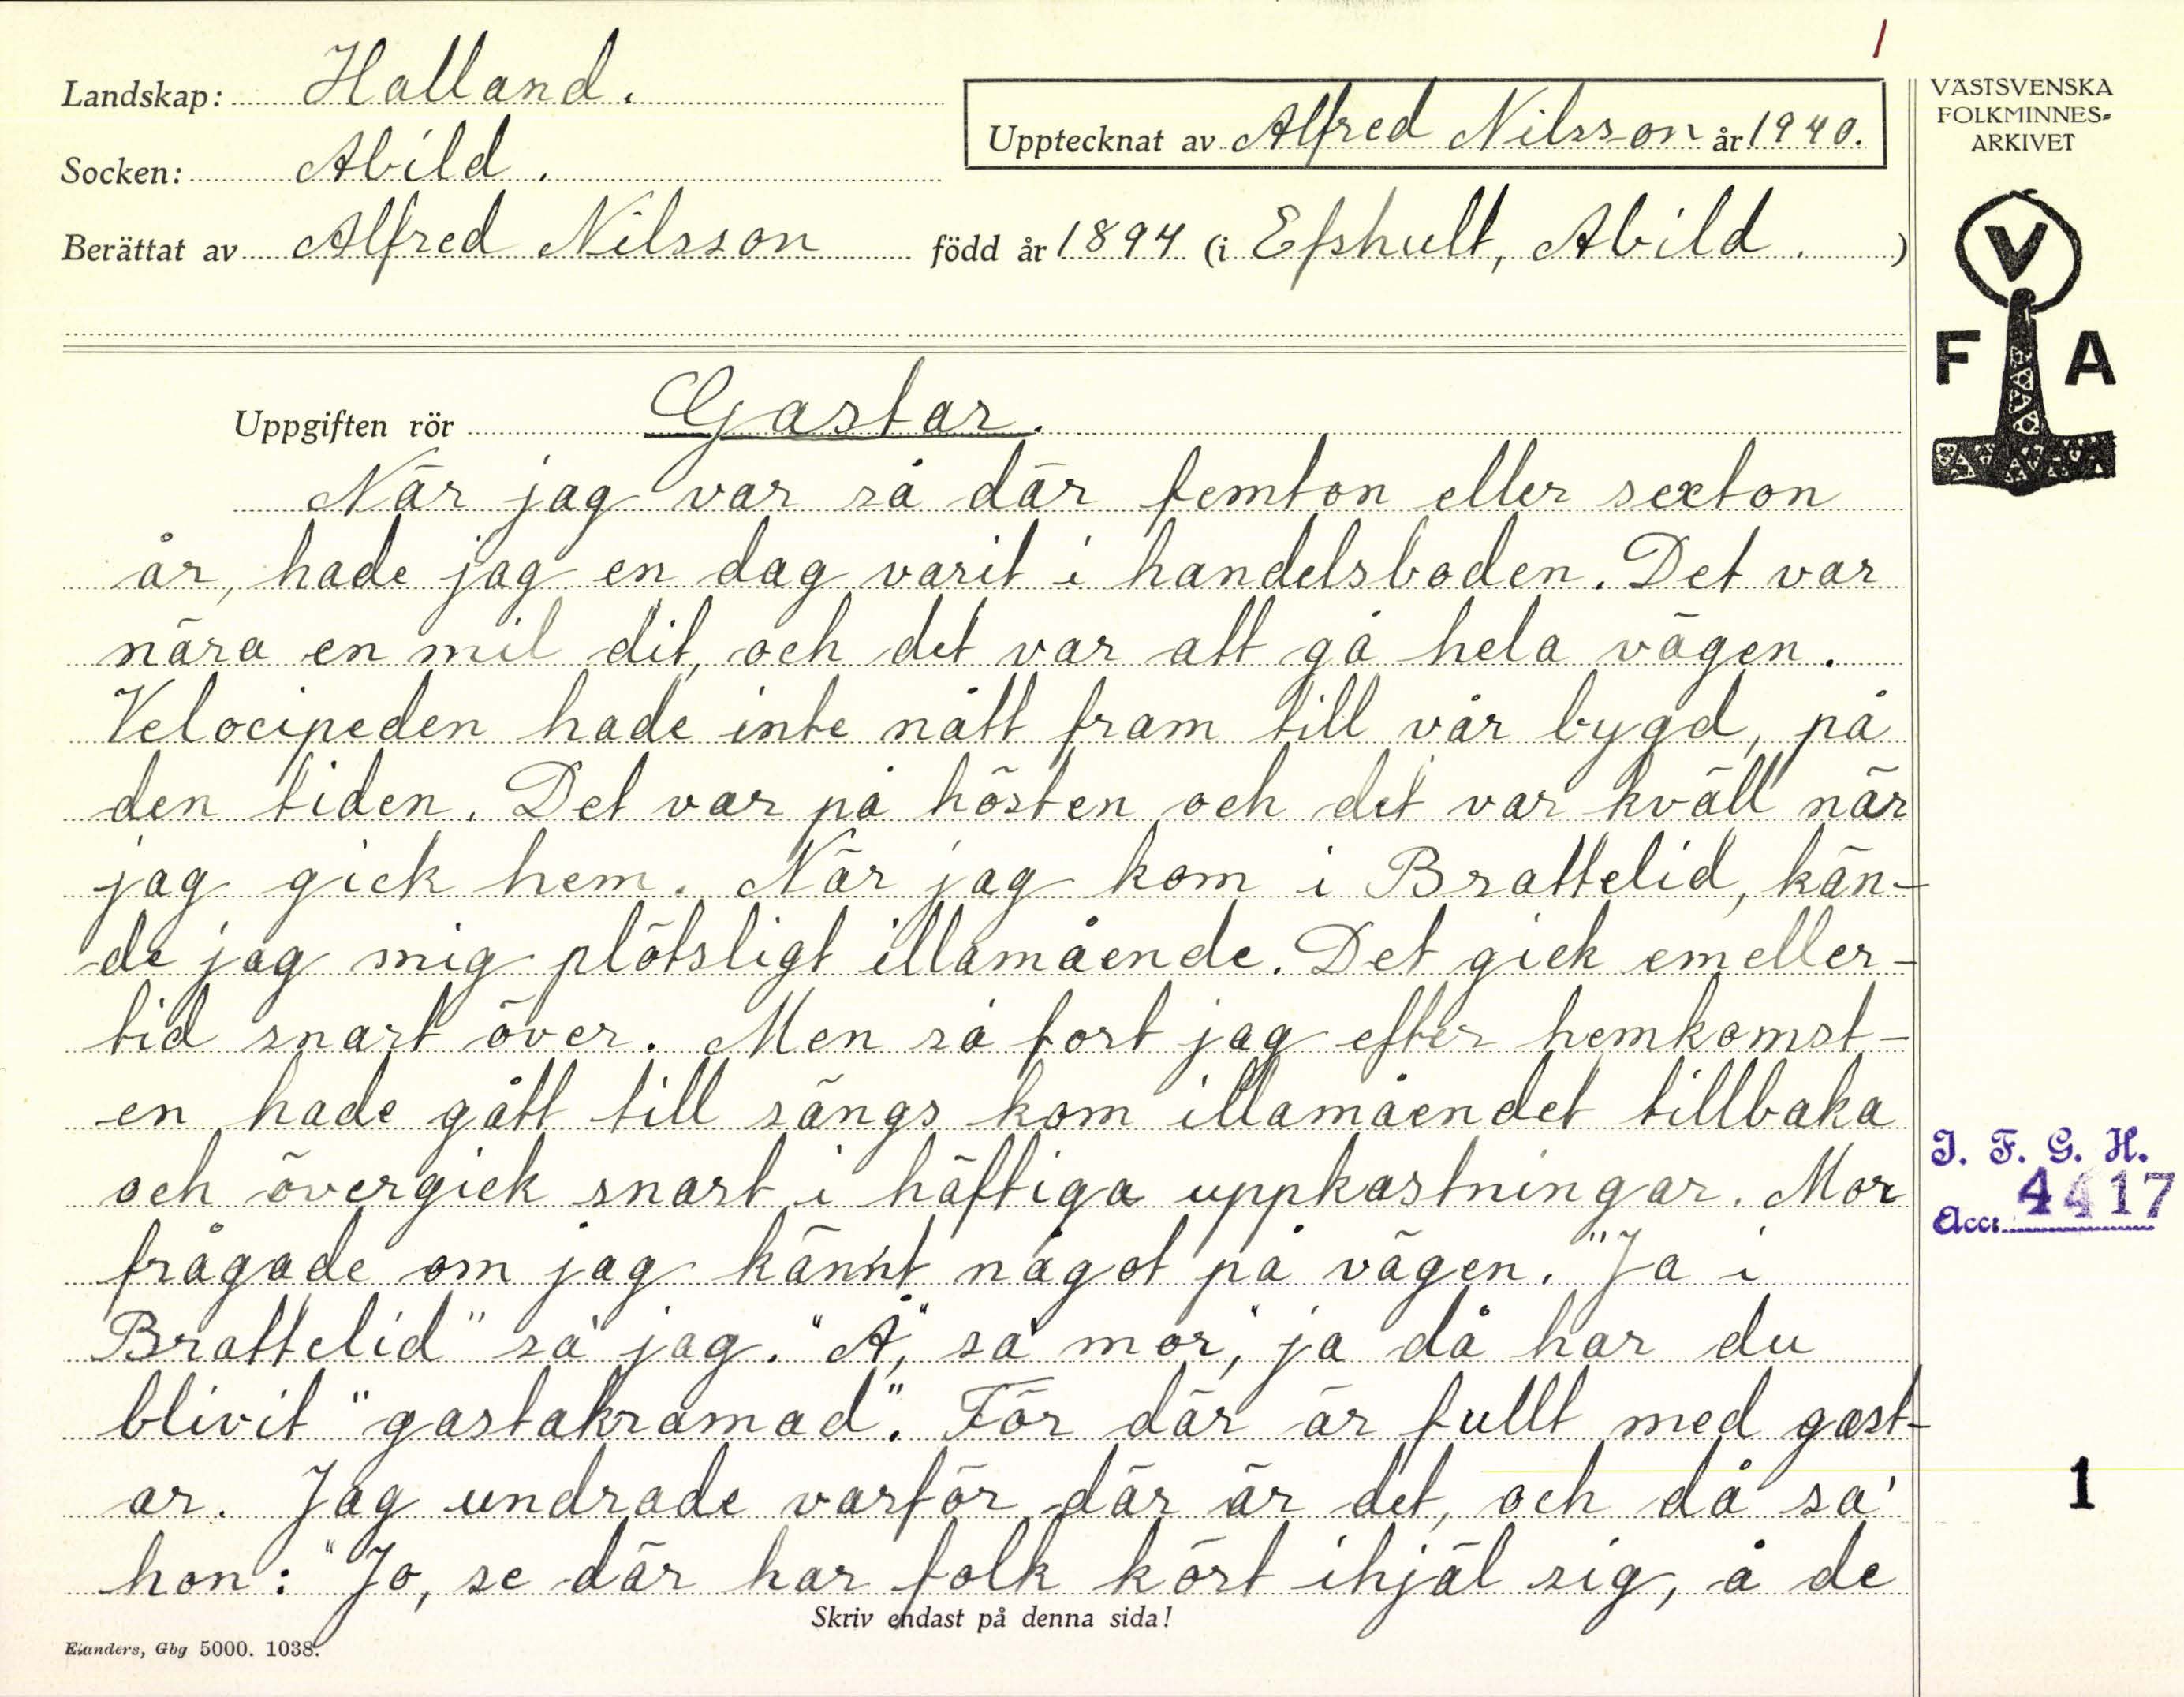 1
Landskap: Halland.
Upptecknat av Alfred Nilsson år 1940.
Socken: Abild.
Berättat av Alfred Nilsson född år 1894 (i Efshult, Abild. )
VÄSTSVENSKA
FOLKMINNES=
ARKIVET
V
F A
Uppgiften rör Gastar.
När jag var så där femton eller sexton
år, hade jag en dag varit i handelsboden. Det var
nära en mil dit, och det var att gå hela vägen.
Velocipeden hade inte nått fram till vår bygd, på
den tiden. Det var på hösten och det var kväll när
jag gick hem. När jag kom i Brattelid, kän-
de jag mig plötsligt illamående. Det gick emeller-
tid snart över. Men så fort jag efter hemkomst-
en hade gått till sängs kom illamåendet tillbaka
och övergick snart i häftiga uppkastningar. Mor
frågade om jag kännt något på vägen. "Ja i
Brattelid" sa' jag. "Å," sa' mor, "ja då har du
blivit "gastakramad". För där är fullt med gast-
ar. Jag undrade varför där är det, och då sa'
hon: "Jo, se där har folk kört ihjäl sig, å de
Skriv endast på denna sida!
Elanders, Gbg 5000. 1038.
I. F. G. H.
Acc. 4417
1